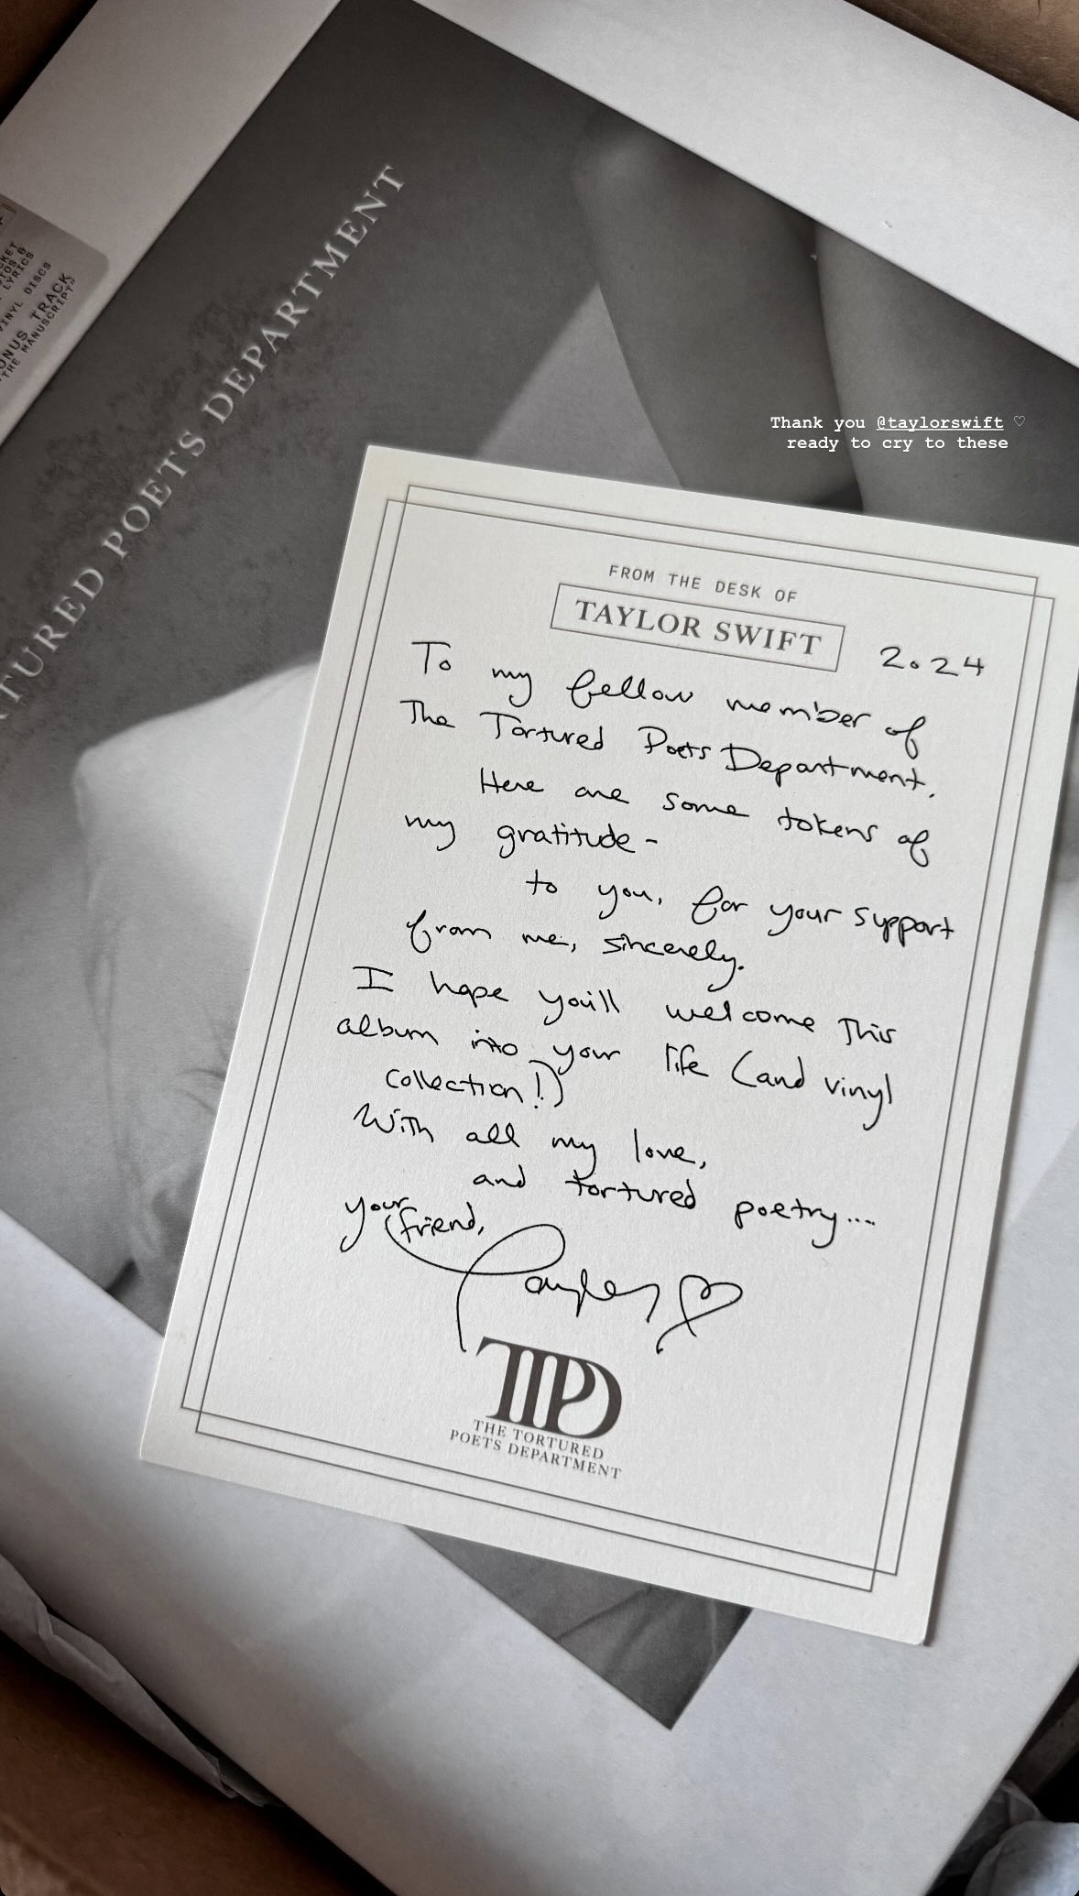 TURED POETS DEPARTMENT
LYRICS
VINYL DISCS
BONUS TRACK
"THE MANUSCRIPT"
Thank you @taylorswift ♡
ready to cry to these
FROM THE DESK OF
TAYLOR SWIFT
2024
To my fellow member of
The Tortured Poets Department.
Here are some tokens of
my gratitude-
to you, for your support
from me, sincerely.
I hope you'll welcome This
album into your life (and vinyl
collection!)
With all my love,
and tortured poetry...
your friend,
Taylor ♡
TTPD
THE TORTURED
POETS DEPARTMENT